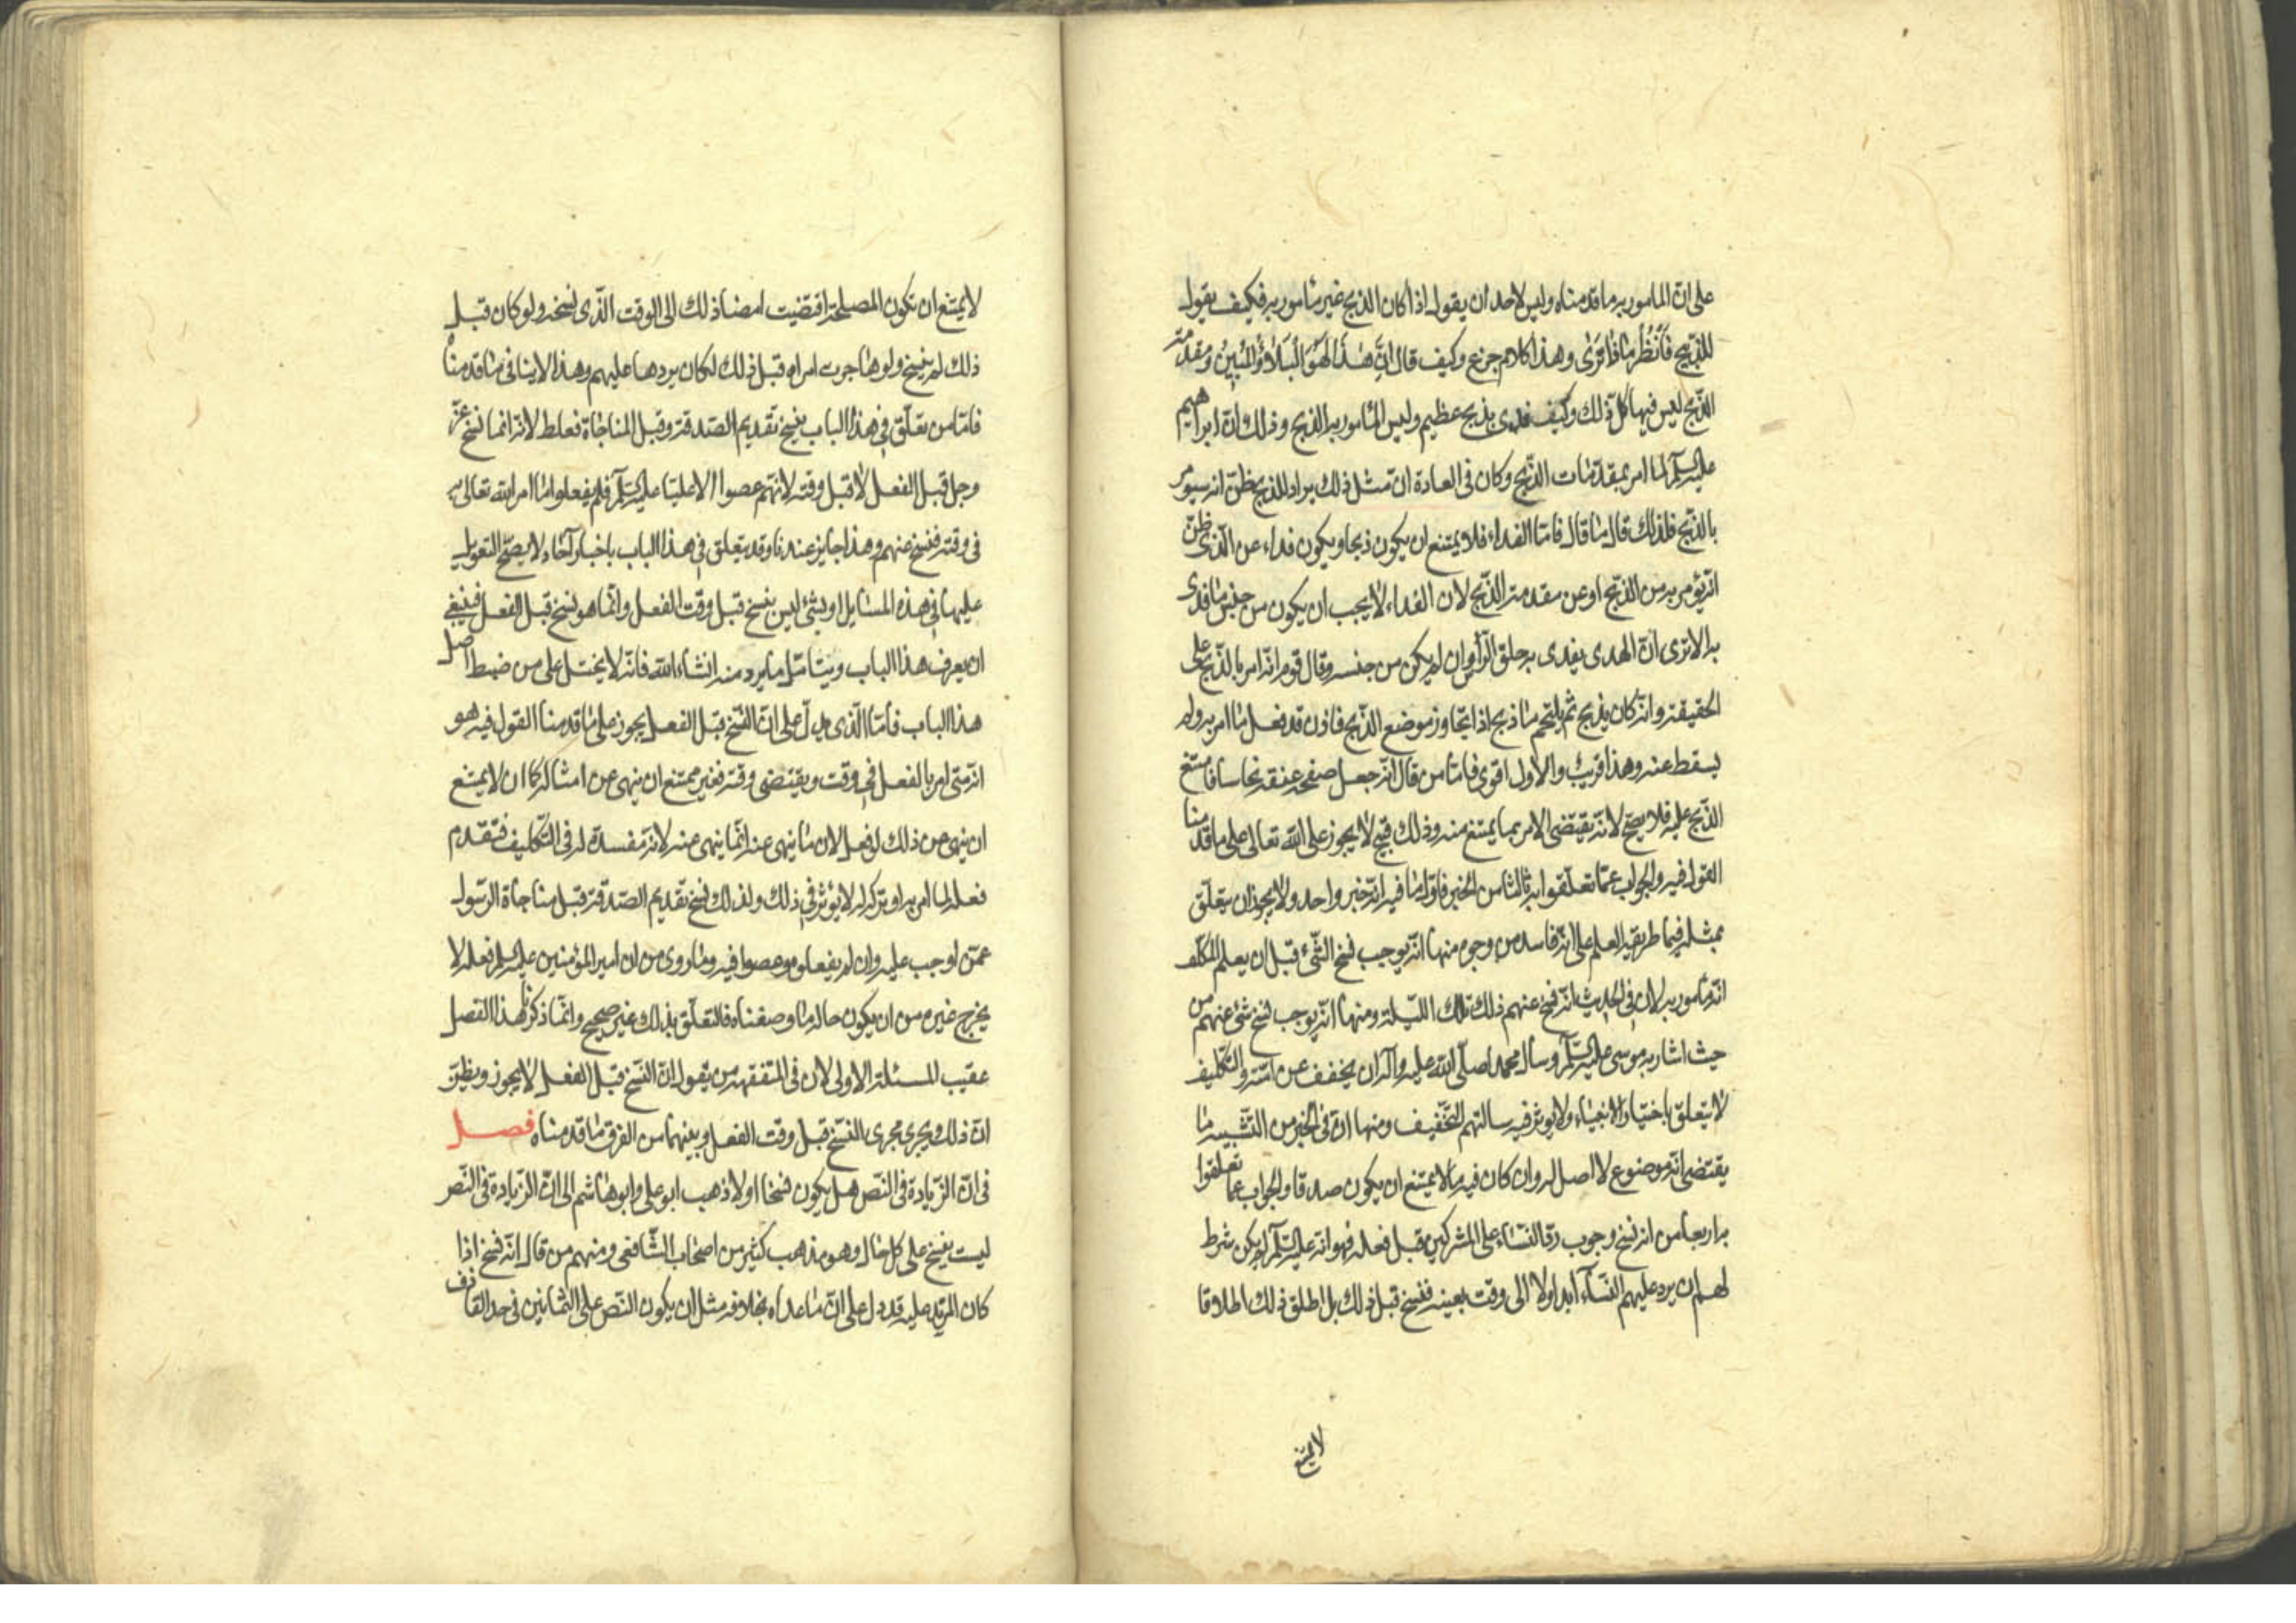 على ان المامور به ما قدمناه وليس لاحد ان يقول اذا كان الذبح غير مأمور به فكيف يقول
للذبيح فَانْظُرْ مٰاذٰا تَرىٰ وهذا كلام جزع وكيف قال اِنَّ هٰذٰا لَهُوَ الْبَلٰاؤُ الْمُبٖينُ ومقدمة
الذّبح ليس فيها كل ذلك وكيف فدى بذبح عظيم وليس المأمور به الذبح وذلك ان ابراهيم
عليه السّلم لما امر بمقدّمات الذّبح وكان في العادة ان مثل ذلك يراد للذبح ظنّ انه سيؤمر
بالذّبح فلذلك قال ما قال فامّا الفداء فلا يمتنع ان يكون ذبحا ويكون فداء عن الّذى ظنّ
انّه يؤمر به من الذّبح او عن مقدمة الذّبح لان الفداء لا يجب ان يكون من جنس ما فدى
به الا ترى انّ الهدى يفدى به حلق الرّأس وان لم يكن من جنسه وقال قوم انّه امر بالذّبح على
الحقيقة وانّه كان يذبح ثم يلتحم ما ذبح اذا تجاوز موضع الذّبح فاذن قد فعل ما امر به ولم
يسقط عنه وهذا قريب والاول اقوى فامّا من قال انّه جعل صفحة عنقه نحاسا فامتنع
الذّبح عليه فلا يصحّ لانّه يقتضى الامر بما يمتنع منه وذلك قبيح لا يجوز على الله تعالى على ما قدمنا
القول فيه والجواب عمّا تعلّقوا به ثالثا من الخبر فاوّل ما فيه انّه خبر واحد ولا يجوز ان يتعلّق
بمثله فيما طريقه العلم على انّه فاسد من وجوه منها انّه يوجب نسخ الشّئ قبل ان يعلم المكلّف
انّه مأمور به لان في الحديث انّه نسخ عنهم ذلك تلك اللّيلة ومنها انّه يوجب نسخ شئ عنهم من
حيث اشار به موسى عليه السّلم وسأل محمد صلّى الله عليه واله ان يخفف عن امّته والتّكليف
لا يتعلّق باختيار الانبياء ولا يوثر فيه سالتهم التّخفيف ومنها ان في الخبر من التّشبيه ما
يقتضى انّه موضوع لا اصل له وان كان فيه ما لا يمتنع ان يكون صدقا والجواب عمّا تعلّقوا
به رابعا من انه نسخ وجوب ردّ النّساء على المشركين قبل فعله فهو انّه عليه السّلم لم يكن شرط
لهم ان يرد عليهم النّسآء ابدا ولا الى وقت بعينه فنسخ قبل ذلك بل اطلق ذلك اطلاقا
لا يمتنع
لا يمتنع ان تكون المصلحة اقتضيت امضا ذلك الى الوقت الّذى نسخه ولو كان قبل
ذلك لم ينسخ ولو هاجرت امراه قبل ذلك لكان يردها عليهم وهذا لا ينافى ما قدمناه
فامّا من تعلّق في هذا الباب بنسخ تقديم الصّدقة وقبل المناجاة فغلط لانّه انما نسخ عزّ
وجل قبل الفعل لا قبل وقته لانّهم عصوا الا عليّا عليه السّلم فلم يفعلوا ما امر الله تعالى به
في وقته فنسخ عنهم وهذا جايز عندنا وقد يتعلق في هذا الباب باخبار آحاد لا يصحّ التعويل
عليها في هذه المسايل او بشئ ليس بنسخ قبل وقت الفعل وانّما هو نسخ قبل الفعل فينبغى
ان يعرف هذا الباب ويتامّل ما يرد منه انشاء الله فانّه لا يختل على من ضبط اصل
هذا الباب فامّا الّذى يدلّ على انّ النّسخ قبل الفعل يجوز على ما قدمنا القول فيه هو
انّه متى امر بالفعل في وقت ويقتضى وقته فغير ممتنع ان ينهى عن امثاله كما ان لا يمتنع
ان ينهى عن ذلك لو فعل لان ما ينهى عنه انّما ينهى عنه لانّه مفسدة له في التّكليف فتقدم
فعله لما امر به او تركه له لا يؤثر في ذلك ولذلك نسخ تقديم الصّدقة قبل مناجاة الرّسول
عمّن اوجب عليه وان لم يفعلوه وعصوا فيه وما روى من ان امير المؤمنين عليه السلم فعله لا
يخرج غيره من ان يكون حاله ما وصفناه فالتعلّق بذلك غير صحيح وانّما ذكرنا هذا الفصل
عقيب المسئلة الاولى لان في المتفقهة من يقول انّ النّسخ قبل الفعل لا يجوز ويظنّ
انّ ذلك يجرى مجرى النّسخ قبل وقت الفعل وبينهما من الفرق ما قدمناه فصل
في انّ الزّيادة في النّص هل يكون نسخا او لا ذهب ابو على وابو هاشم الى انّ الزّيادة في النّص
ليست بنسخ على كل حال وهو مذهب كثير من اصحاب الشّافعى ومنهم من قال انّه نسخ اذا
كان المزيد عليه قد دل على انّ ما عداه بخلافه مثل ان يكون النّص على الثمانين في حد القاذف